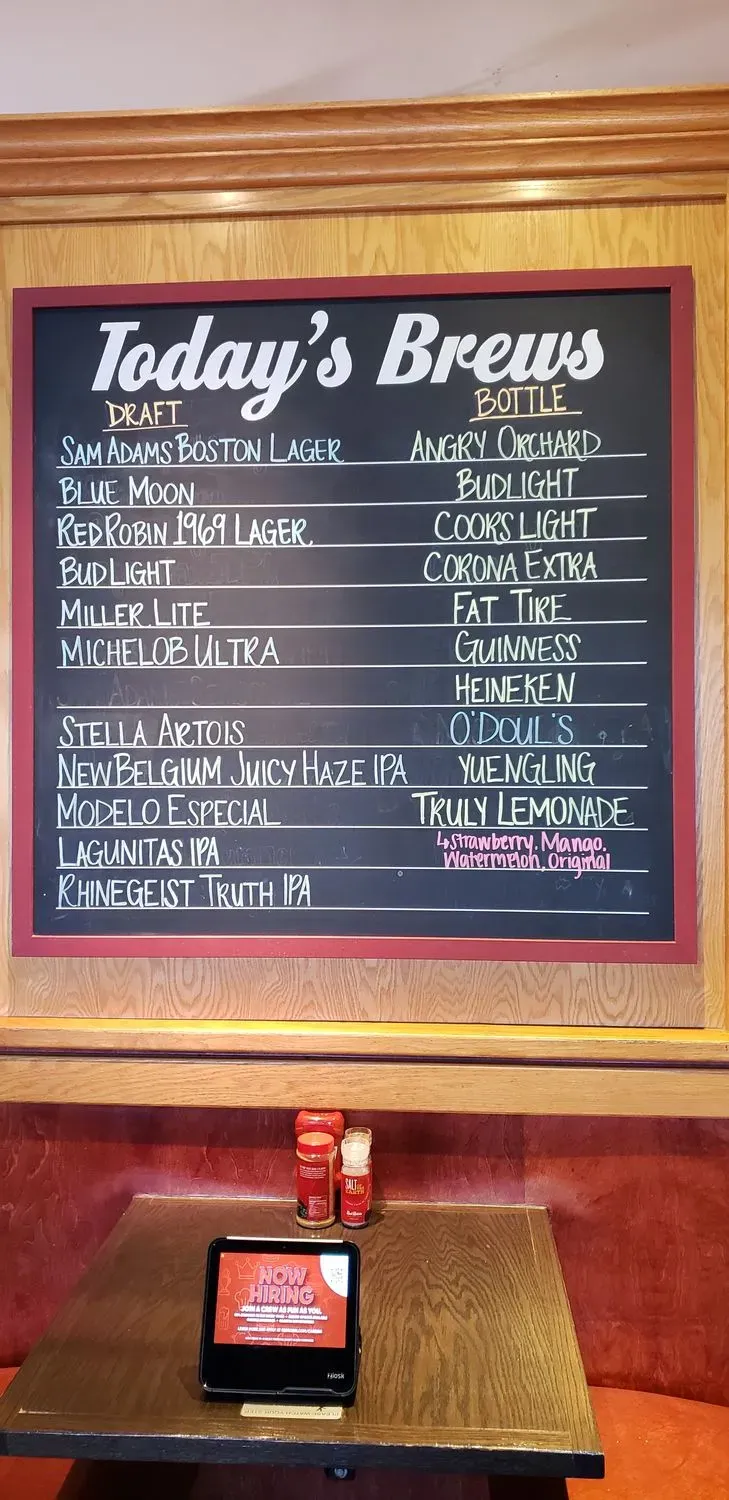 Today's Brews
DRAFT
SAM ADAMS BOSTON LAGER
BLUE MOON
RED ROBIN 1969 LAGER.
BUD LIGHT
MILLER LITE
MICHELOB ULTRA
STELLA ARTOIS
NEW BELGIUM JUICY HAZE IPA
MODELO ESPECIAL
LAGUNITAS IPA
RHINEGEIST TRUTH IPA
BOTTLE
ANGRY ORCHARD
BUDLIGHT
COORS LIGHT
CORONA EXTRA
FAT TIRE
GUINNESS
HEINEKEN
O'DOUL'S
YUENGLING
TRULY LEMONADE
↳Strawberry, Mango,
Watermelon, Original
SALT
EARTH
NOW
HIRING
JOIN A CREW AS FUN AS YOU.
ziosk